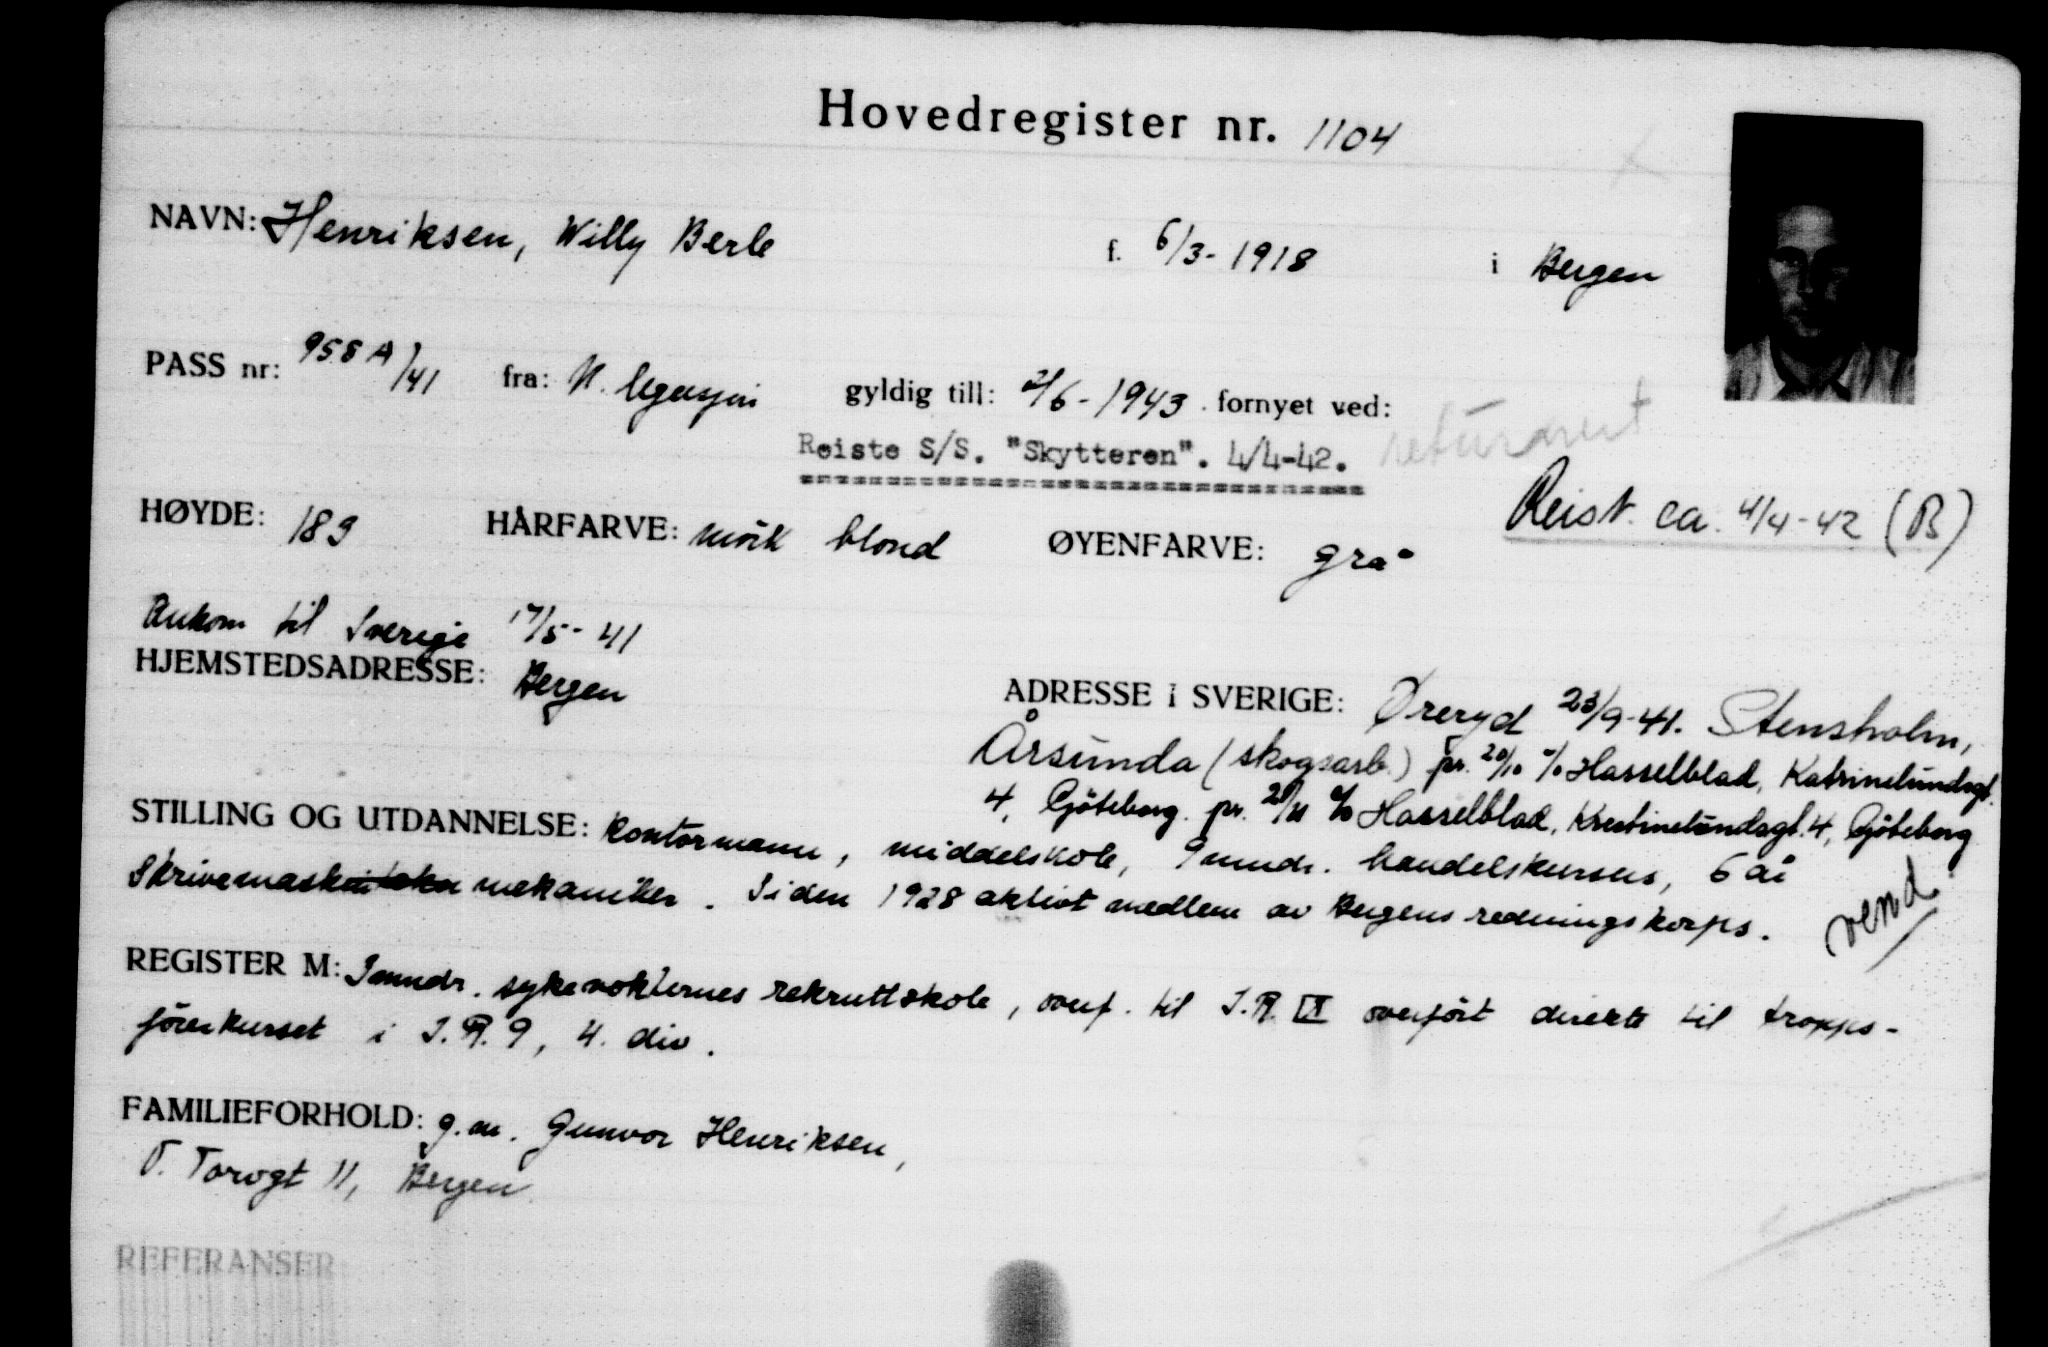 Hovedregister nr. 1104
NAVN: Henriksen, Willy Berle f. 6/3-1918 i Bergen
PASS nr: 958 A/41 fra: N. legasjon gyldig till: 2/6-1943 fornyet ved:
Reiste S/S. "Skytteren". 4/4-42. returnert
Reist ca. 4/4-42 (B)
HØYDE: 189 HÅRFARVE: mörk blond ØYENFARVE: grå
Ankom til Sverige 17/5-41
HJEMSTEDSADRESSE: Bergen
ADRESSE I SVERIGE: Øreryd 23/9-41. Stensholm,
Årsunda (skogsarb.) pr. 20/10 c/o Hasselblad, Katrinelundsgt.
4, Göteborg. pr. 21/11 c/o Hasselblad, Kristinelundsgt. 4, Göteborg
STILLING OG UTDANNELSE: Kontormann, middelskole, 9 mndr. handelskursus, 6 år
skrivemaskin mekaniker. Siden 1928 aktivt medlem av Bergens redningskorps.
vend
REGISTER M: 3 mndr. sykevokternes rekruttskole, overf. til I.R. IX overfört direkte til tropps-
förerkurset i I.R. 9, 4. div.
FAMILIEFORHOLD: g.m. Gunvor Henriksen,
Torvgt 11, Bergen
REFERANSER